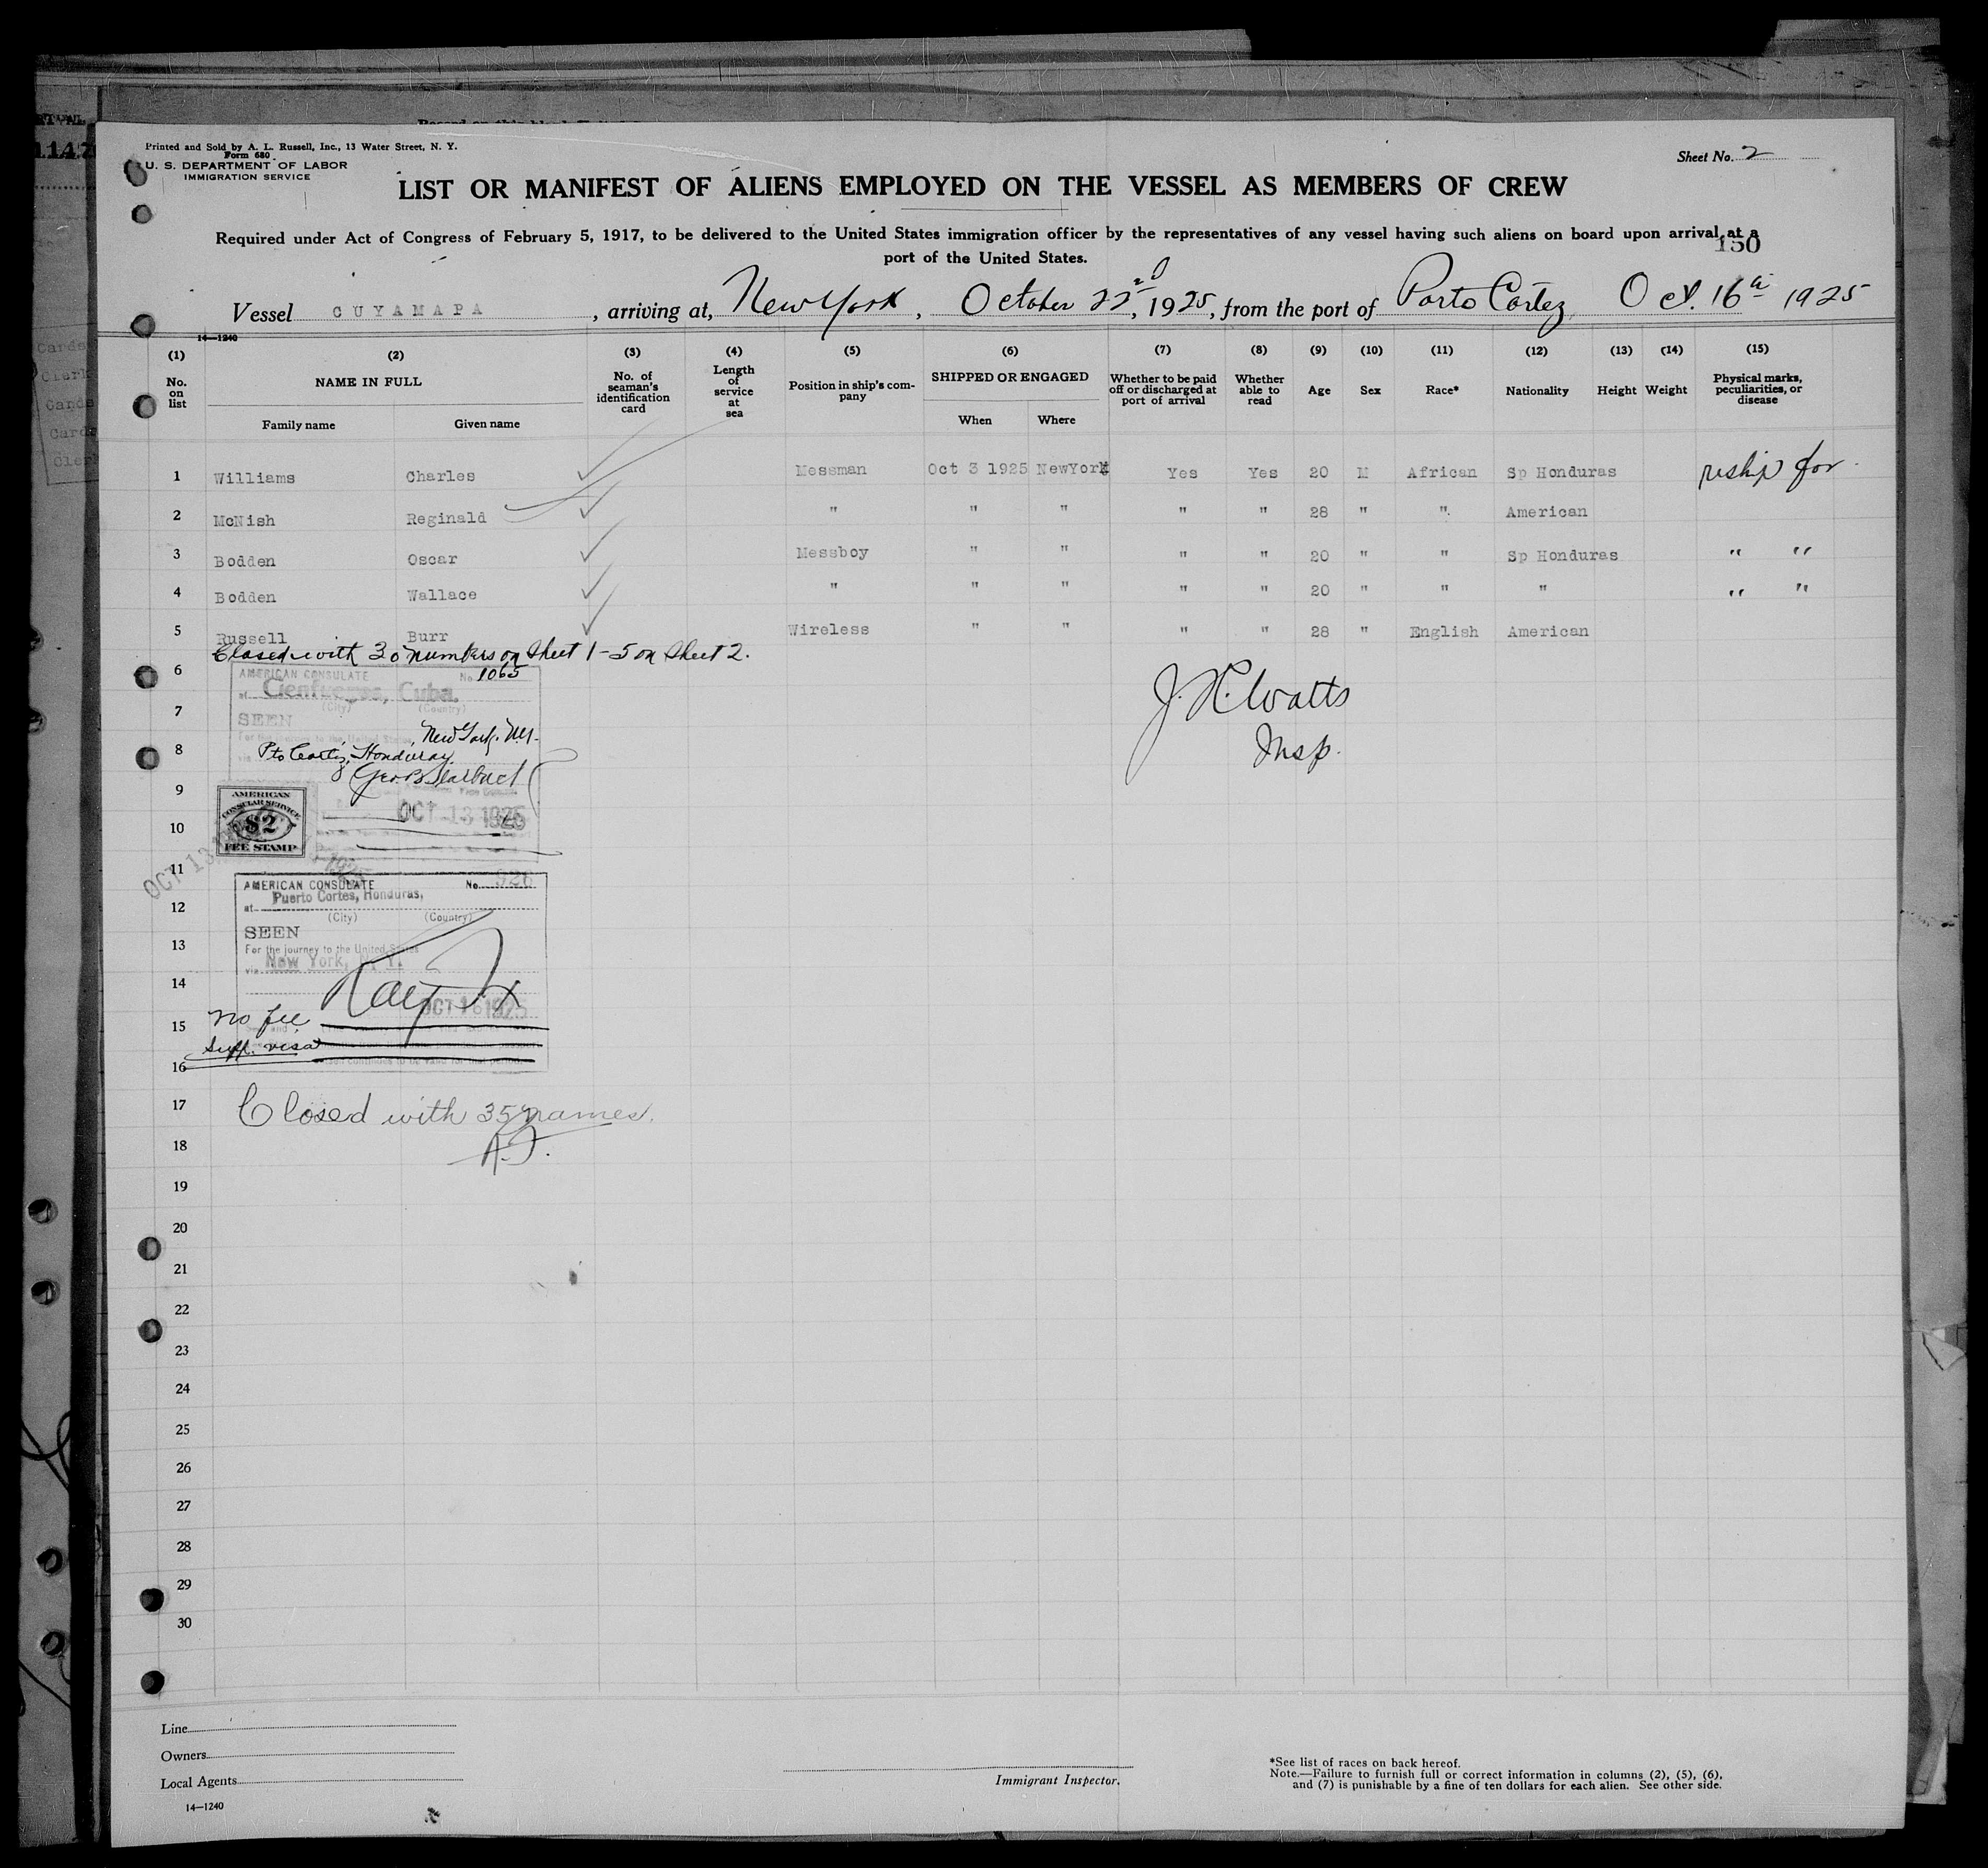 Printed and Sold by A. L. Russell, Inc., 13 Water Street, N. Y.
Form 680
U. S. DEPARTMENT OF LABOR
IMMIGRATION SERVICE
Sheet No. 2
LIST OR MANIFEST OF ALIENS EMPLOYED ON THE VESSEL AS MEMBERS OF CREW
Required under Act of Congress of February 5, 1917, to be delivered to the United States immigration officer by the representatives of any vessel having such aliens on board upon arrival at a
port of the United States.
150
Vessel CUYAMAPA, arriving at, New York, October 22nd, 1925, from the port of Porto Cortez Oct. 16th 1925
14—1240
(1) (2) (3) (4) (5) (6) (7) (8) (9) (10) (11) (12) (13) (14) (15)
No. on list NAME IN FULL Family name Given name No. of seaman's identification card Length of service at sea Position in ship's company SHIPPED OR ENGAGED When Where Whether to be paid off or discharged at port of arrival Whether able to read Age Sex Race* Nationality Height Weight Physical marks, peculiarities, or disease
1 Williams Charles Messman Oct 3 1925 NewYork Yes Yes 20 M African Sp Honduras reship for
2 McNish Reginald " " " " " 28 " " American
3 Bodden Oscar Messboy " " " " 20 " " Sp Honduras " "
4 Bodden Wallace " " " " " 20 " " " " "
5 Russell Burr Wireless " " " " 28 " English American
Closed with 30 numbers on Sheet 1 - 5 on Sheet 2.
6
AMERICAN CONSULATE No. 1065
at Cienfuegos, Cuba.
(City) (Country)
7
SEEN
For the journey to the United States
New York. N.Y.
8
via Pto Cortez, Honduras
J. H. Watts
Insp.
9
AMERICAN
CONSULAR SERVICE
$2
FEE STAMP
OCT 13 1925
10
OCT 13
11
AMERICAN CONSULATE No. 526
at Puerto Cortes, Honduras,
12
(City) (Country)
SEEN
13
For the journey to the United States
via New York, N. Y.
14
OCT 16 1925
15 No fee
Supl. visa
16
17 Closed with 35 names.
18
19
20
21
22
23
24
25
26
27
28
29
30
Line
Owners
Local Agents
14—1240
Immigrant Inspector.
*See list of races on back hereof.
Note.—Failure to furnish full or correct information in columns (2), (5), (6),
and (7) is punishable by a fine of ten dollars for each alien. See other side.